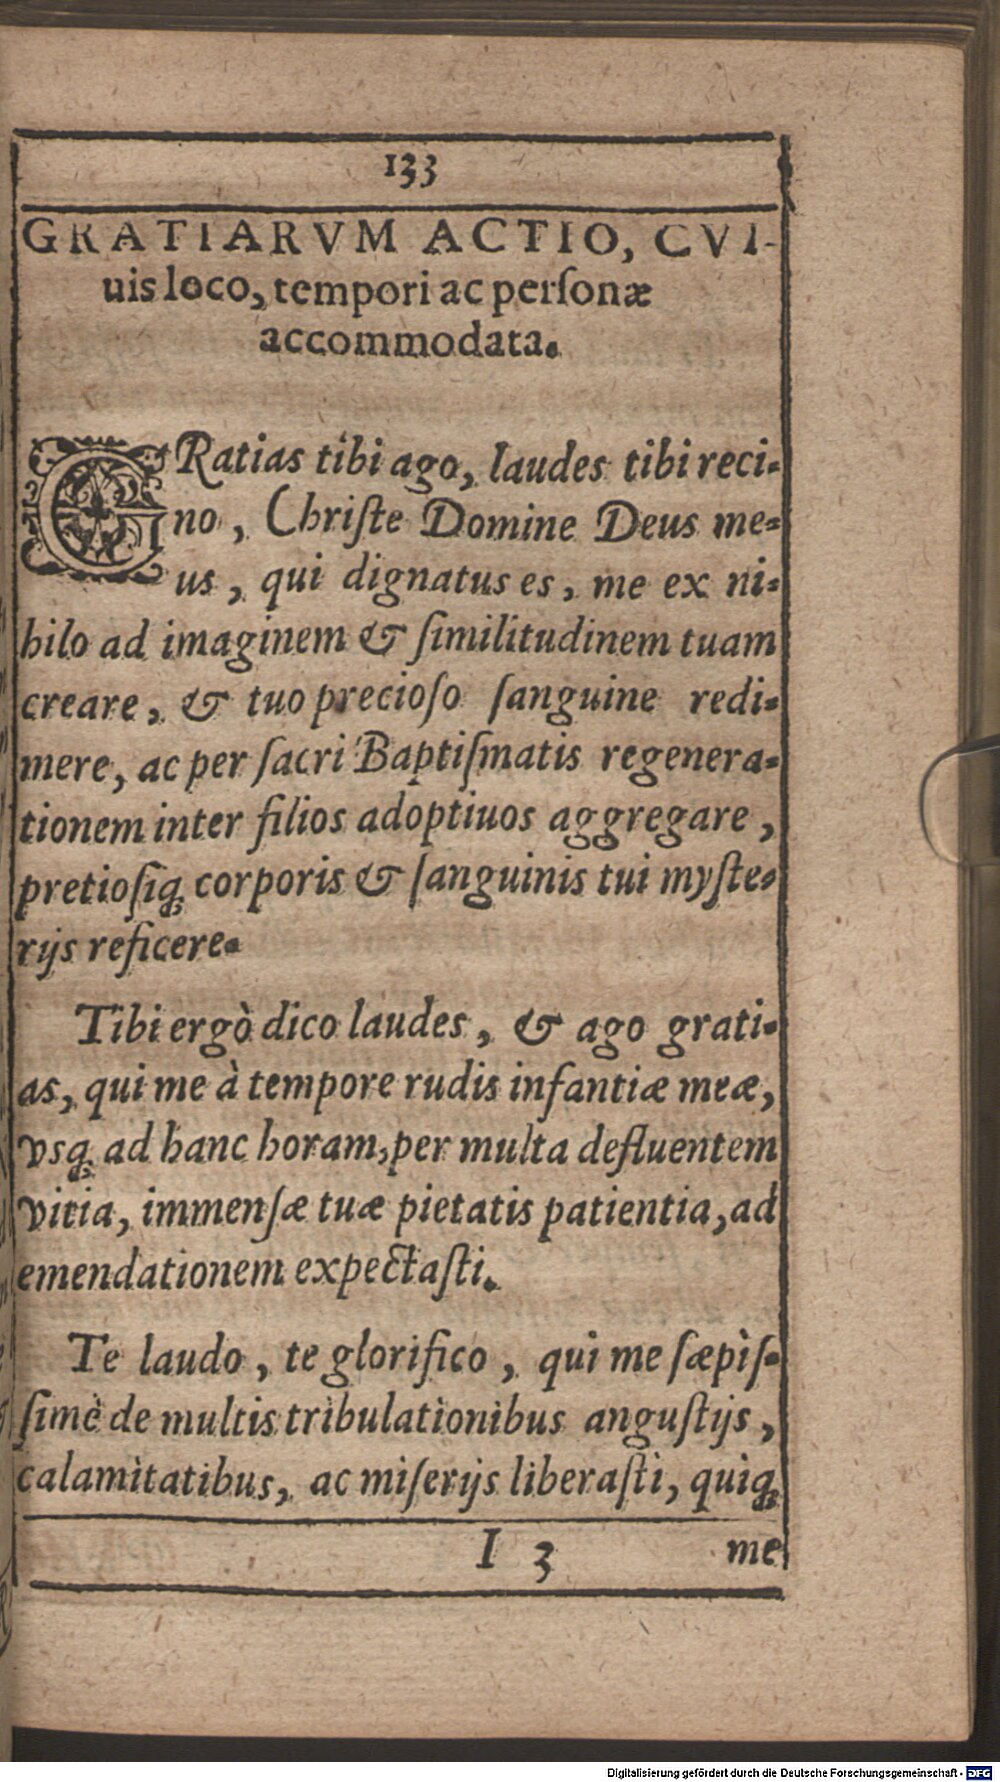 133
GRATIARVM ACTIO, CVI-
uis loco, tempori ac perſonæ
accommodata.
GRatias tibi ago, laudes tibi reci-
no, Chriſte Domine Deus me-
us, qui dignatus es, me ex ni-
hilo ad imaginem & ſimilitudinem tuam
creare, & tuo precioſo ſanguine redi-
mere, ac per ſacri Baptiſmatis regenera-
tionem inter filios adoptiuos aggregare,
pretioſiq́; corporis & ſanguinis tui myſte-
rijs reficere.
Tibi ergò dico laudes, & ago grati-
as, qui me à tempore rudis infantiæ meæ,
vsq; ad hanc horam, per multa defluentem
vitia, immenſæ tuæ pietatis patientia, ad
emendationem expectaſti.
Te laudo, te glorifico, qui me ſæpiſ-
ſimè de multis tribulationibus anguſtijs,
calamitatibus, ac miſerijs liberaſti, quiq;
I 3
me
Digitalisierung gefördert durch die Deutsche Forschungsgemeinschaft - DFG